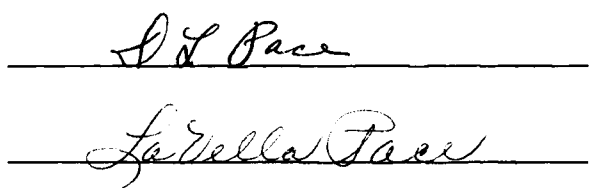 D L Pace
LaVella Pace